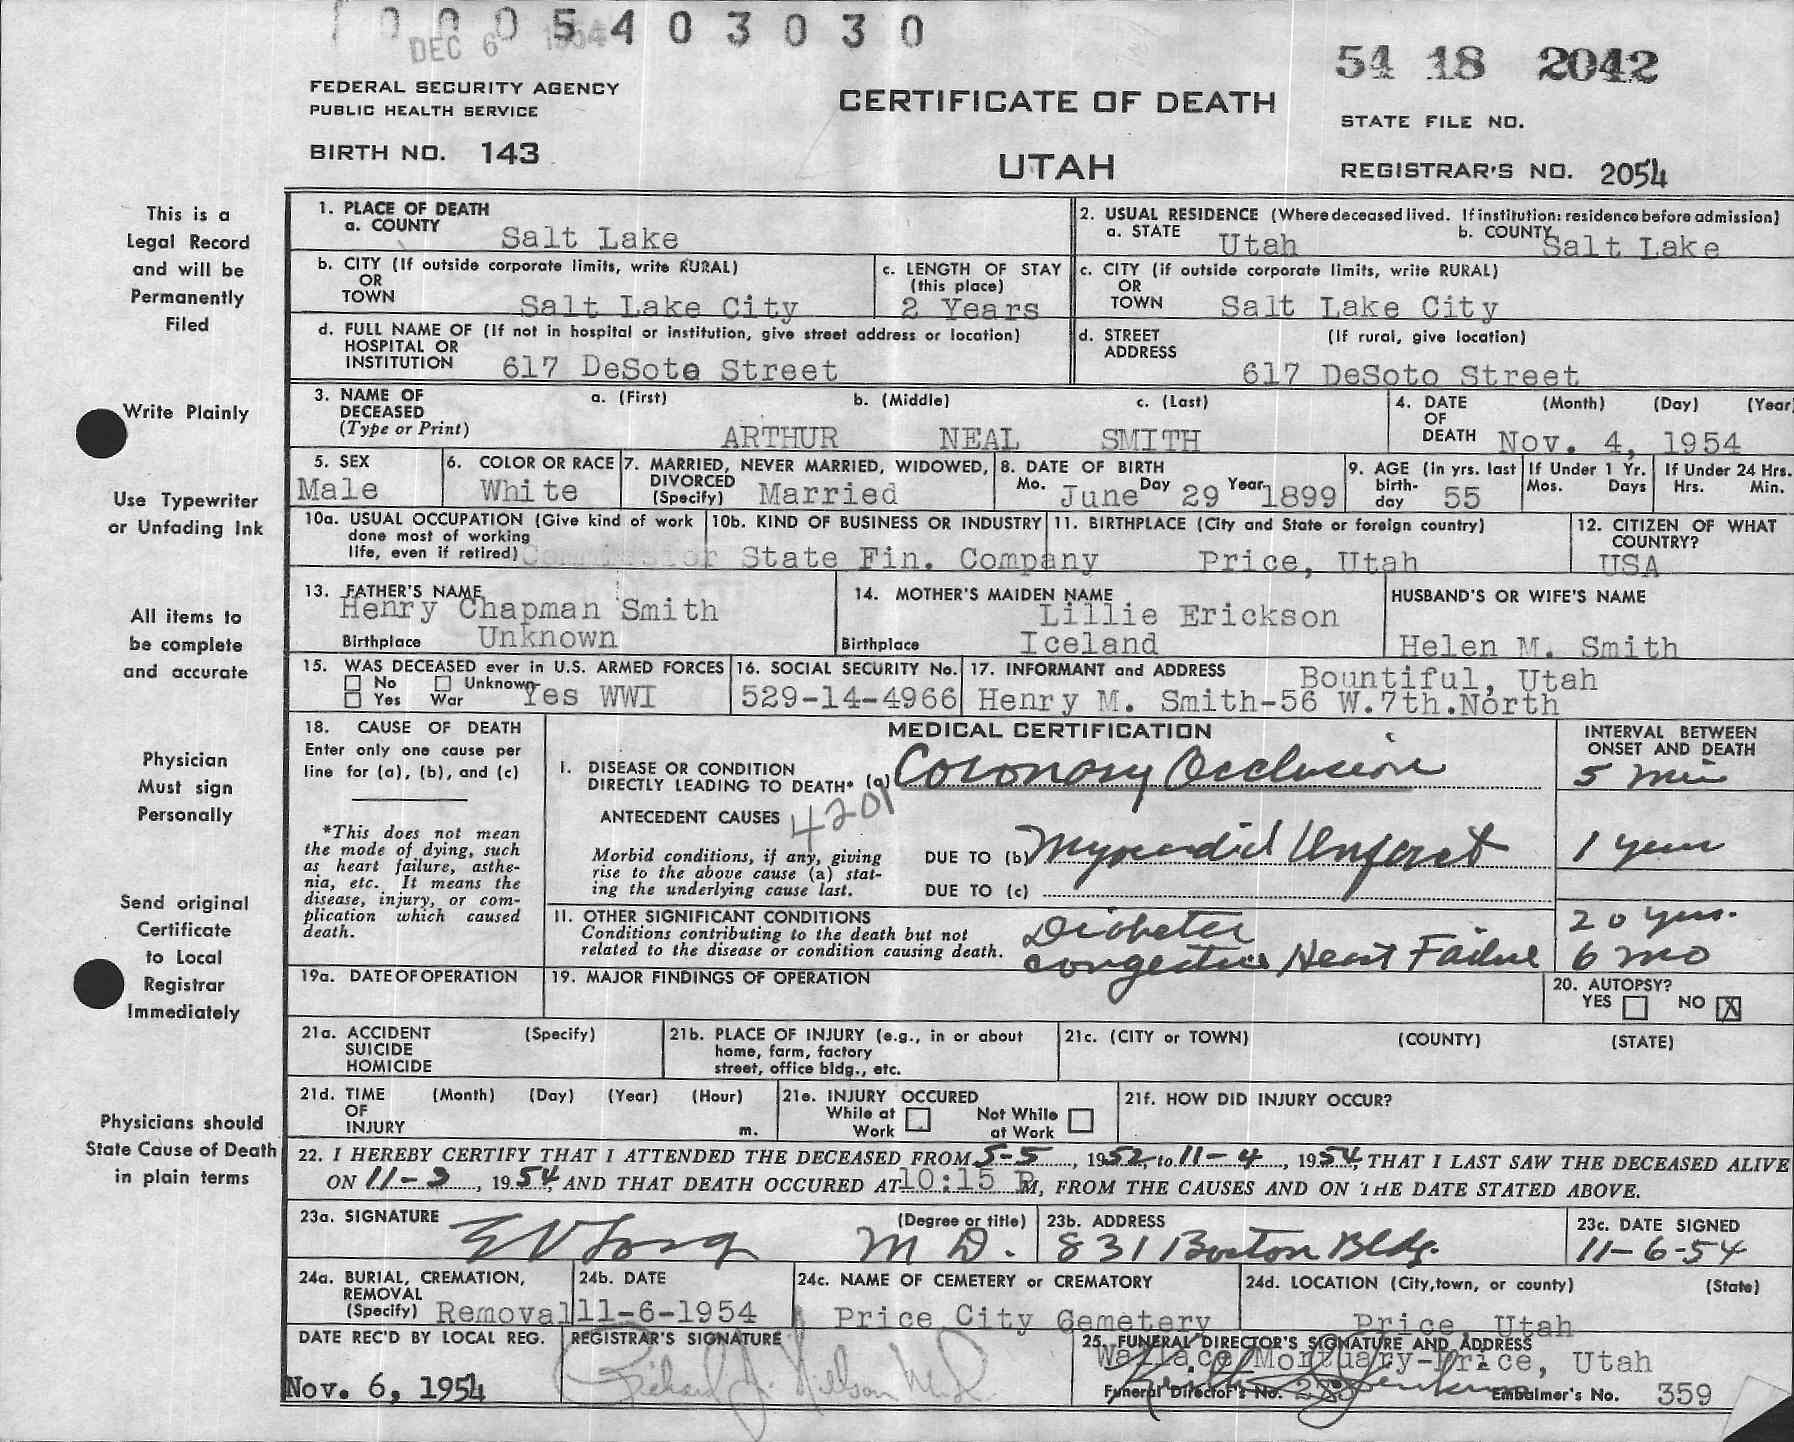 1 0 0 0 5 4 0 3 0 3 0
DEC 6 1954
54 18 2042
FEDERAL SECURITY AGENCY
PUBLIC HEALTH SERVICE
CERTIFICATE OF DEATH
STATE FILE NO.
BIRTH NO. 143
UTAH
REGISTRAR'S NO. 2054
This is a
Legal Record
and will be
Permanently
Filed
Write Plainly
Use Typewriter
or Unfading Ink
All items to
be complete
and accurate
Physician
Must sign
Personally
Send original
Certificate
to Local
Registrar
Immediately
Physicians should
State Cause of Death
in plain terms
1. PLACE OF DEATH
a. COUNTY Salt Lake
2. USUAL RESIDENCE (Where deceased lived. If institution: residence before admission)
a. STATE Utah b. COUNTY Salt Lake
b. CITY (If outside corporate limits, write RURAL)
OR
TOWN Salt Lake City
c. LENGTH OF STAY
(this place)
2 Years
c. CITY (if outside corporate limits, write RURAL)
OR
TOWN Salt Lake City
d. FULL NAME OF (If not in hospital or institution, give street address or location)
HOSPITAL OR
INSTITUTION 617 DeSoto Street
d. STREET (If rural, give location)
ADDRESS
617 DeSoto Street
3. NAME OF a. (First) b. (Middle) c. (Last)
DECEASED
(Type or Print) ARTHUR NEAL SMITH
4. DATE (Month) (Day) (Year)
OF
DEATH Nov. 4, 1954
5. SEX
Male
6. COLOR OR RACE
White
7. MARRIED, NEVER MARRIED, WIDOWED,
DIVORCED
(Specify) Married
8. DATE OF BIRTH
Mo. June Day 29 Year 1899
9. AGE (In yrs. last
birth-
day 55
If Under 1 Yr.
Mos. Days
If Under 24 Hrs.
Hrs. Min.
10a. USUAL OCCUPATION (Give kind of work
done most of working
life, even if retired)
10b. KIND OF BUSINESS OR INDUSTRY
State Fin. Company
11. BIRTHPLACE (City and State or foreign country)
Price, Utah
12. CITIZEN OF WHAT
COUNTRY?
USA
13. FATHER'S NAME
Henry Chapman Smith
Birthplace Unknown
14. MOTHER'S MAIDEN NAME
Lillie Erickson
Birthplace Iceland
HUSBAND'S OR WIFE'S NAME
Helen M. Smith
15. WAS DECEASED ever in U.S. ARMED FORCES
No Unknown
Yes War Yes WWI
16. SOCIAL SECURITY No.
529-14-4966
17. INFORMANT and ADDRESS Bountiful, Utah
Henry M. Smith-56 W.7th.North
18. CAUSE OF DEATH
Enter only one cause per
line for (a), (b), and (c)
*This does not mean
the mode of dying, such
as heart failure, asthe-
nia, etc. It means the
disease, injury, or com-
plication which caused
death.
MEDICAL CERTIFICATION
INTERVAL BETWEEN
ONSET AND DEATH
I. DISEASE OR CONDITION
DIRECTLY LEADING TO DEATH* (a) Coronary Occlusion 5 min
ANTECEDENT CAUSES 4201
Morbid conditions, if any, giving
rise to the above cause (a) stat-
ing the underlying cause last.
DUE TO (b) Myocardial Infarct 1 year
DUE TO (c)
II. OTHER SIGNIFICANT CONDITIONS
Conditions contributing to the death but not
related to the disease or condition causing death.
Diabetes 20 yrs.
Congestive Heart Failure 6 mo
19a. DATE OF OPERATION
19. MAJOR FINDINGS OF OPERATION
20. AUTOPSY?
YES NO X
21a. ACCIDENT (Specify)
SUICIDE
HOMICIDE
21b. PLACE OF INJURY (e.g., in or about
home, farm, factory
street, office bldg., etc.
21c. (CITY or TOWN) (COUNTY) (STATE)
21d. TIME (Month) (Day) (Year) (Hour)
OF
INJURY m.
21e. INJURY OCCURED
While at Not While
Work at Work
21f. HOW DID INJURY OCCUR?
22. I HEREBY CERTIFY THAT I ATTENDED THE DECEASED FROM 5-5, 1952, to 11-4, 1954, THAT I LAST SAW THE DECEASED ALIVE
ON 11-3, 1954, AND THAT DEATH OCCURED AT 10:15 P.M, FROM THE CAUSES AND ON THE DATE STATED ABOVE.
23a. SIGNATURE (Degree or title)
E V Long M D.
23b. ADDRESS
831 Boston Bldg.
23c. DATE SIGNED
11-6-54
24a. BURIAL, CREMATION,
REMOVAL
(Specify) Removal
24b. DATE
11-6-1954
24c. NAME OF CEMETERY or CREMATORY
Price City Cemetery
24d. LOCATION (City, town, or county) (State)
Price, Utah
DATE REC'D BY LOCAL REG.
Nov. 6, 1954
REGISTRAR'S SIGNATURE
Richard J. Nelson M.D.
25. FUNERAL DIRECTOR'S SIGNATURE AND ADDRESS
Wallace Mortuary-Price, Utah
Funeral Director's No. Embalmer's No. 359